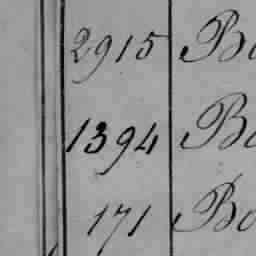 2915 Bo
1394 Bo
171 Bo